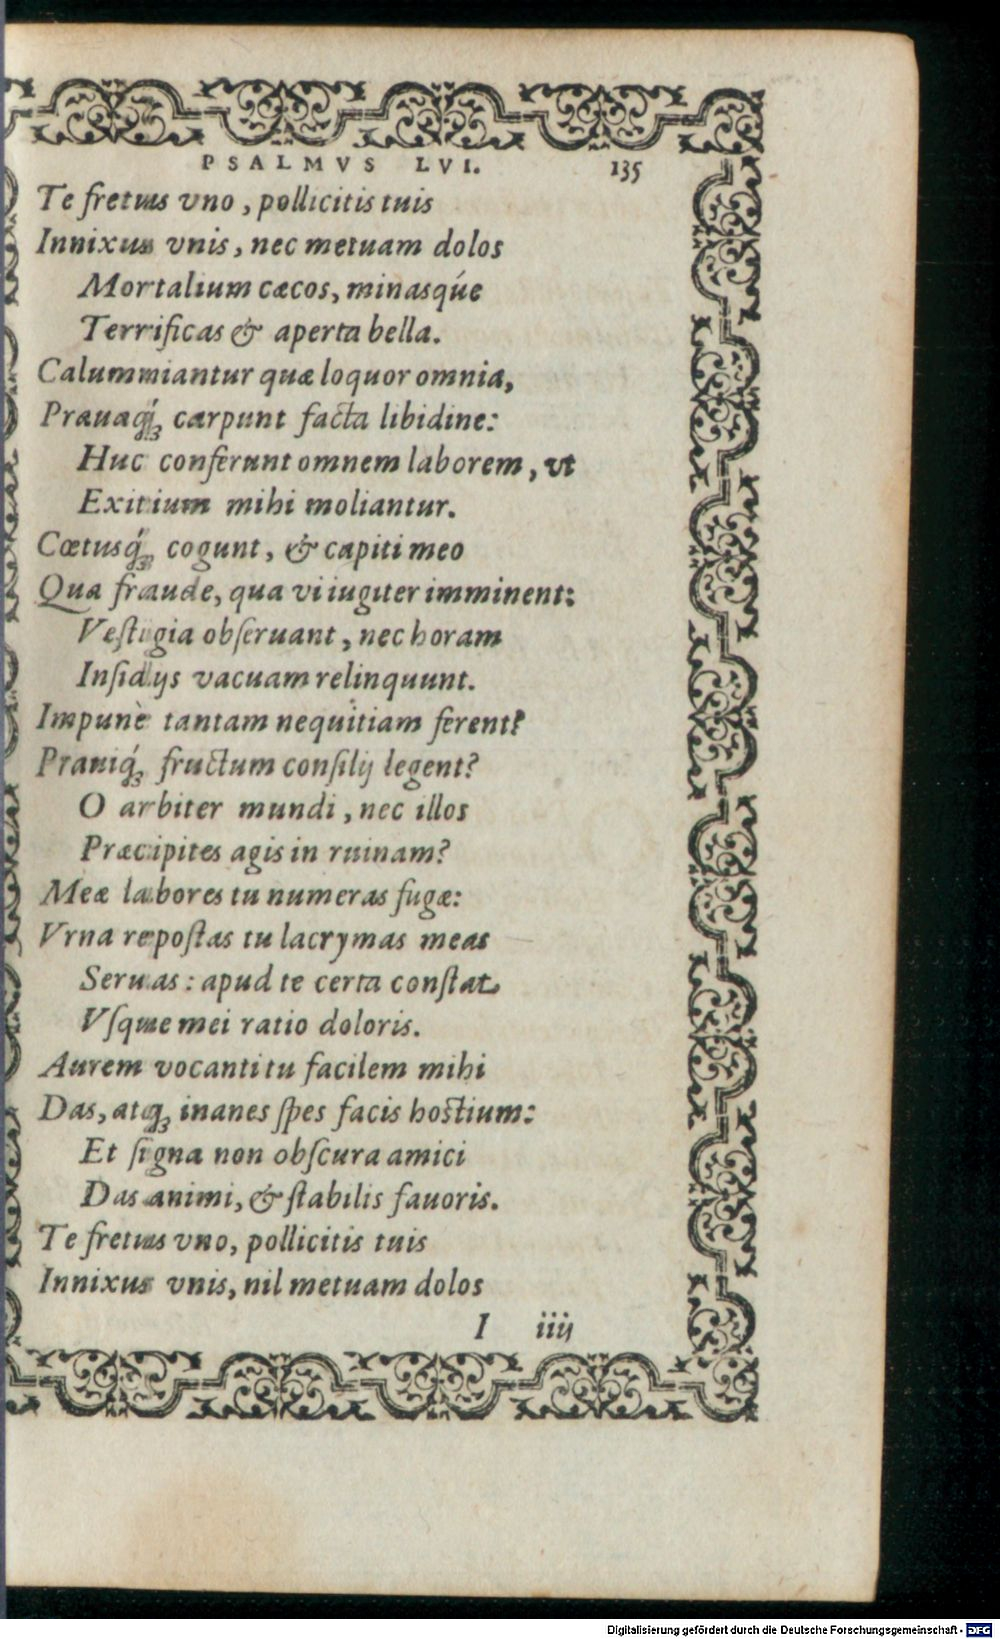 PSALMVS LVI. 135
Te fretus vno, pollicitis tuis
Innixus vnis, nec metuam dolos
Mortalium cæcos, minasqúe
Terrificas & aperta bella.
Calumniantur quæ loquor omnia,
Prauaq́ꝫ carpunt facta libidine:
Huc conferunt omnem laborem, vt
Exitium mihi moliantur.
Cœtusq́ꝫ cogunt, & capiti meo
Qua fraude, qua vi iugiter imminent:
Veſtigia obſeruant, nec horam
Inſidijs vacuam relinquunt.
Impunè tantam nequitiam ferent?
Prauiq́ꝫ fructum conſilij legent?
O arbiter mundi, nec illos
Præcipites agis in ruinam?
Meæ labores tu numeras fugæ:
Vrna repoſtas tu lacrymas meas
Seruas: apud te certa conſtat
Vſque mei ratio doloris.
Aurem vocanti tu facilem mihi
Das, atqꝫ inanes ſpes facis hoſtium:
Et ſigna non obſcura amici
Das animi, & ſtabilis fauoris.
Te fretus vno, pollicitis tuis
Innixus vnis, nil metuam dolos
I iiij
Digitalisierung gefördert durch die Deutsche Forschungsgemeinschaft - DFG